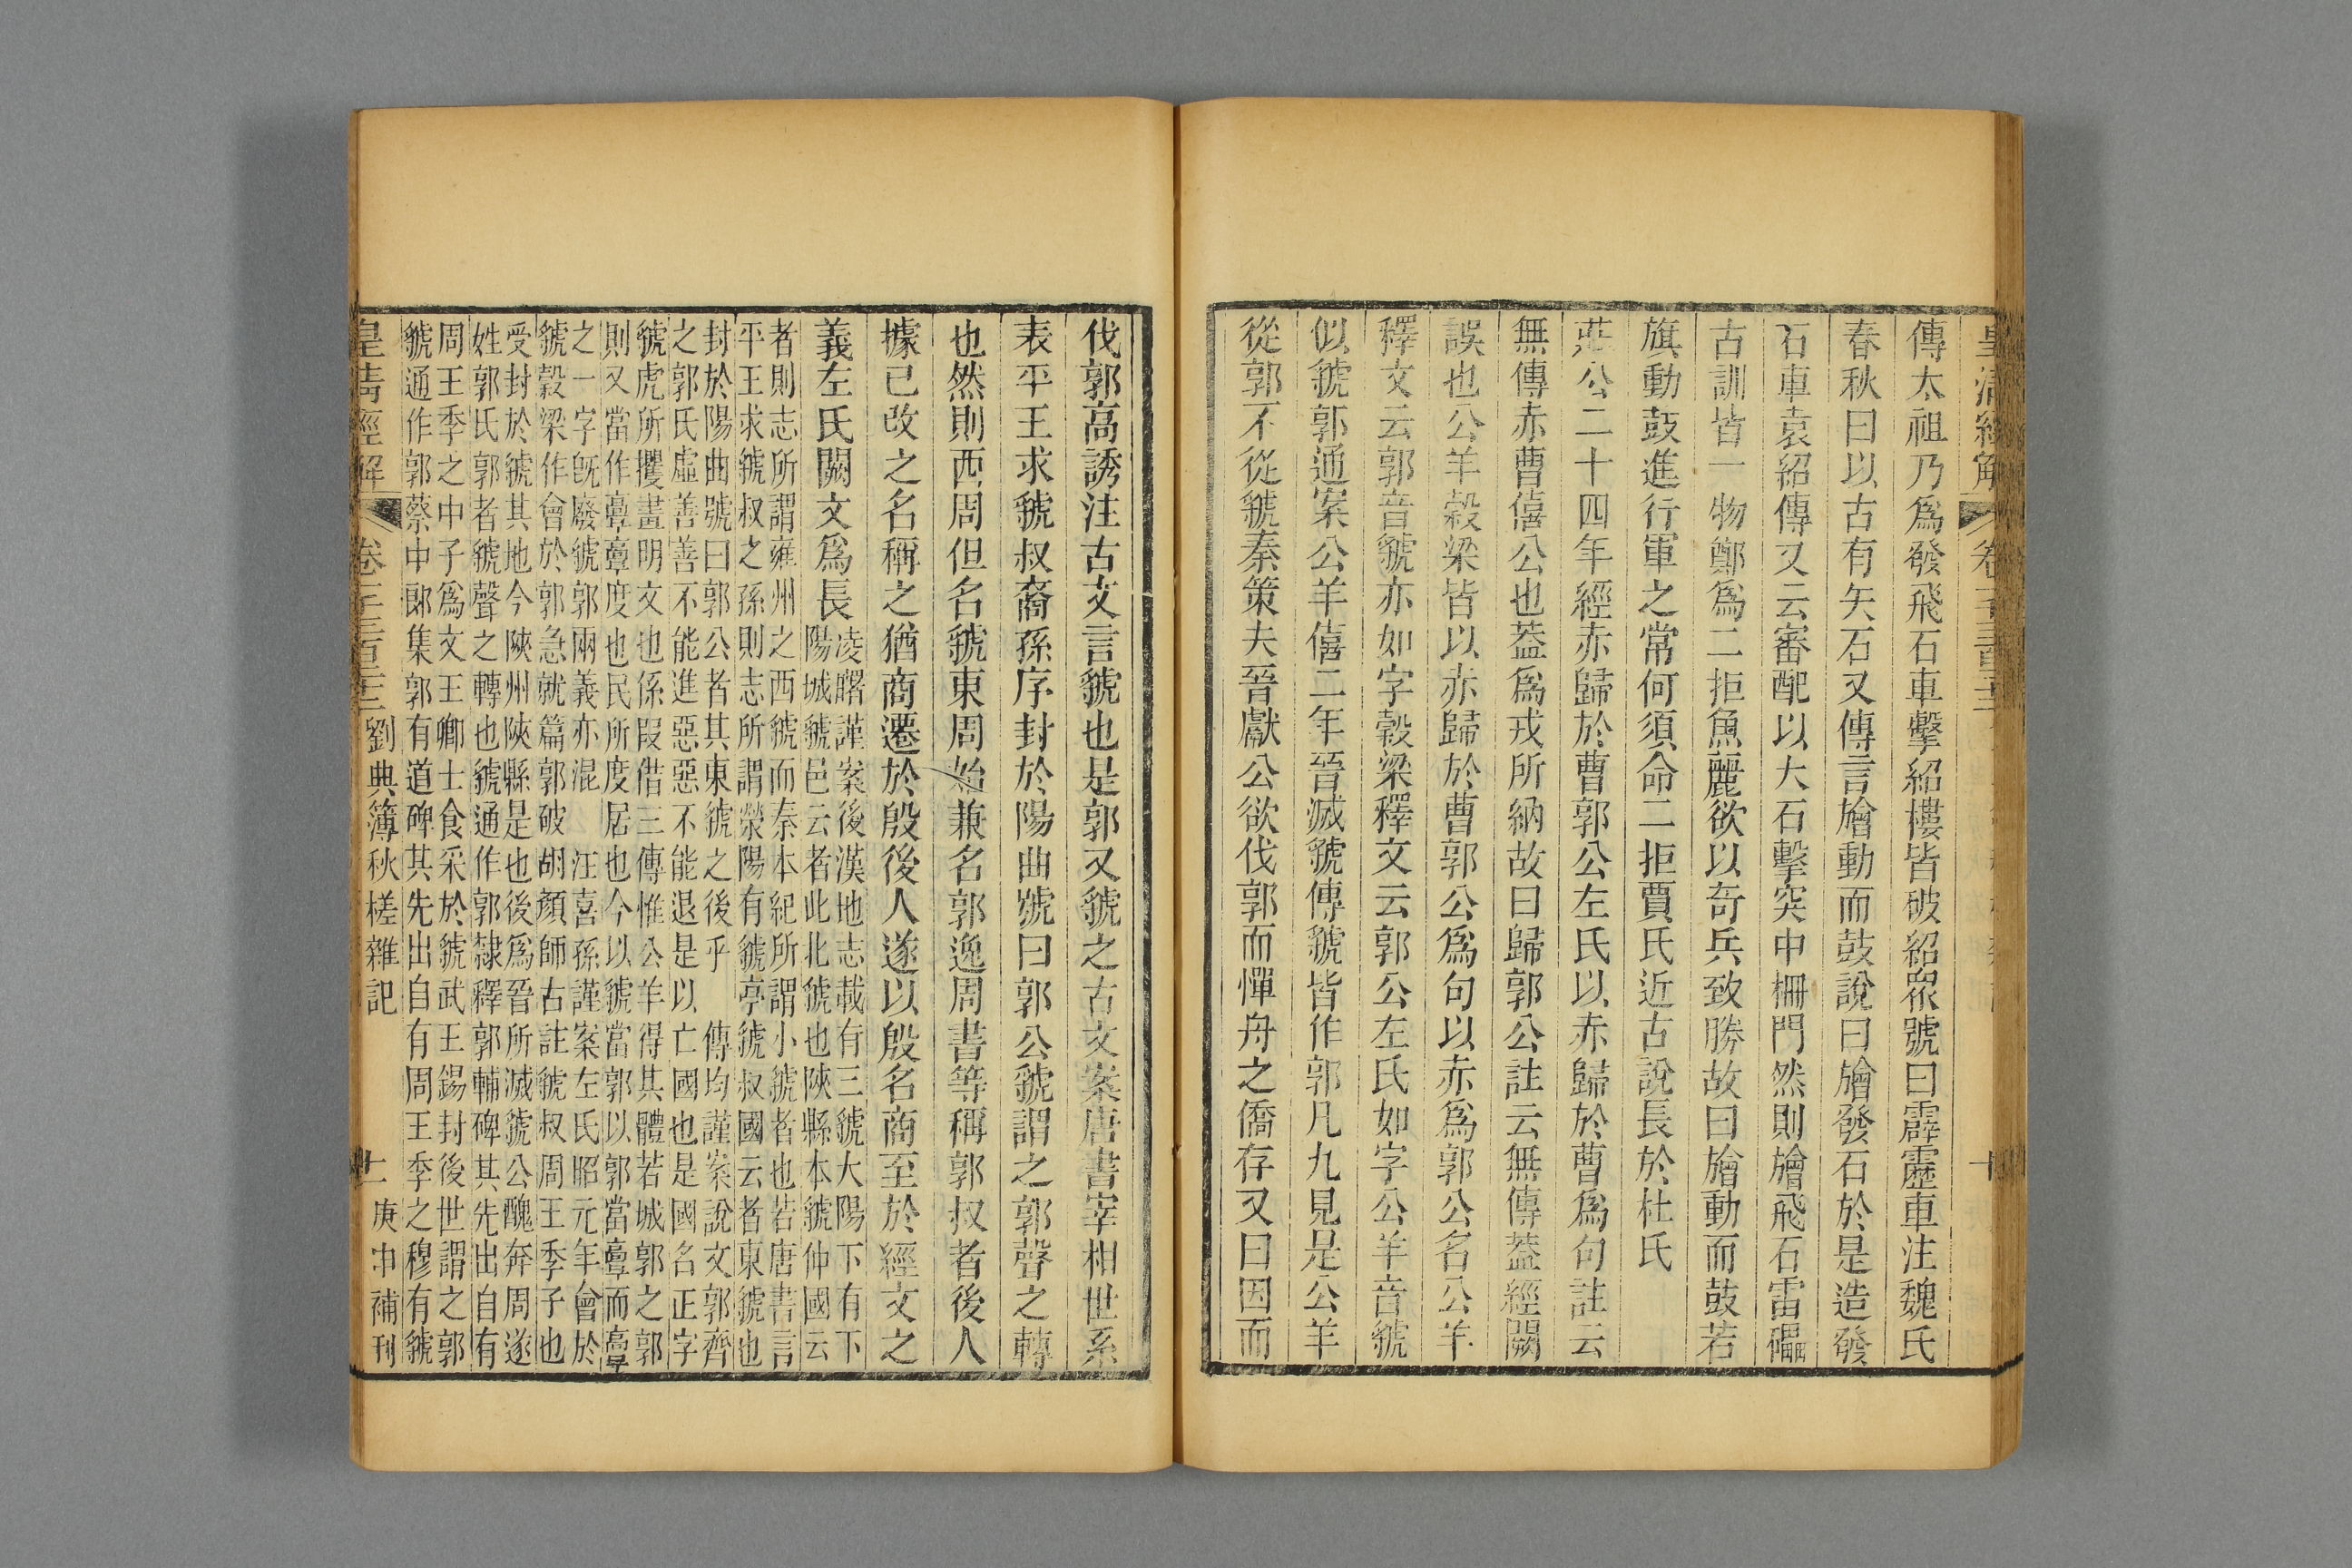 皇清經解
傳太祖乃爲發飛石車擊紹樓皆破紹眾號曰霹靂車注魏氏
春秋曰以古有矢石又傳言旝動而鼓說曰旝發石於是造發
石車袁紹傳又云審配以大石擊突中柵門然則旝飛石雷礧
古訓皆一物鄭爲二拒魚麗欲以奇兵致勝故曰旝動而鼓若
旗動鼓進行軍之常何須命二拒賈氏近古說長於杜氏
莊公二十四年經赤歸於曹郭公左氏以赤歸於曹爲句註云
無傳赤曹僖公也葢爲戎所納故曰歸郭公註云無傳葢經闕
誤也公羊榖梁皆以赤歸於曹郭公爲句以赤爲郭公名公羊
釋文云郭音虢亦如字榖梁釋文云郭公左氏如字公羊音虢
似虢郭通案公羊僖二年晉滅虢傳虢皆作郭凡九見是公羊
從郭不從虢秦策夫晉獻公欲伐郭而憚舟之僑存又曰因而
伐郭高誘注古文言虢也是郭又虢之古文案唐書宰相世系
表平王求虢叔裔孫序封於陽曲號曰郭公虢謂之郭聲之轉
也然則西周但名虢東周始兼名郭逸周書等稱郭叔者後人
據已改之名稱之猶商遷於殷後人遂以殷名商至於經文之
義左氏闕文爲長
凌曙謹案後漢地志載有三虢大陽下有下
陽城虢邑云者此北虢也陝縣本虢仲國云
者則志所謂雍州之西虢而秦本紀所謂小虢者也若唐書言
平王求虢叔之孫則志所謂滎陽有虢亭虢叔國云者東虢也
封於陽曲號曰郭公者其東虢之後乎 傳均謹案說文郭齊
之郭氏虛善善不能進惡惡不能退是以亡國也是國名正字
虢虎所攫畫明文也係叚借三傳惟公羊得其體若城郭之郭
則又當作𩫖𩫖度也民所度居也今以虢當郭以郭當𩫖而𩫖
之一字旣廢虢郭兩義亦混 汪喜孫謹案左氏昭元年會於
虢穀梁作會於郭急就篇郭破胡顏師古註虢叔周王季子也
受封於虢其地今陝州陝縣是也後爲晉所滅虢公醜奔周遂
姓郭氏郭者虢聲之轉也虢通作郭隸釋郭輔碑其先出自有
周王季之中子爲文王卿士食采於虢武王錫封後世謂之郭
虢通作郭蔡中郎集郭有道碑其先出自有周王季之穆有虢
皇清經解
劉典簿秋槎雜記
十一
庚申補刊